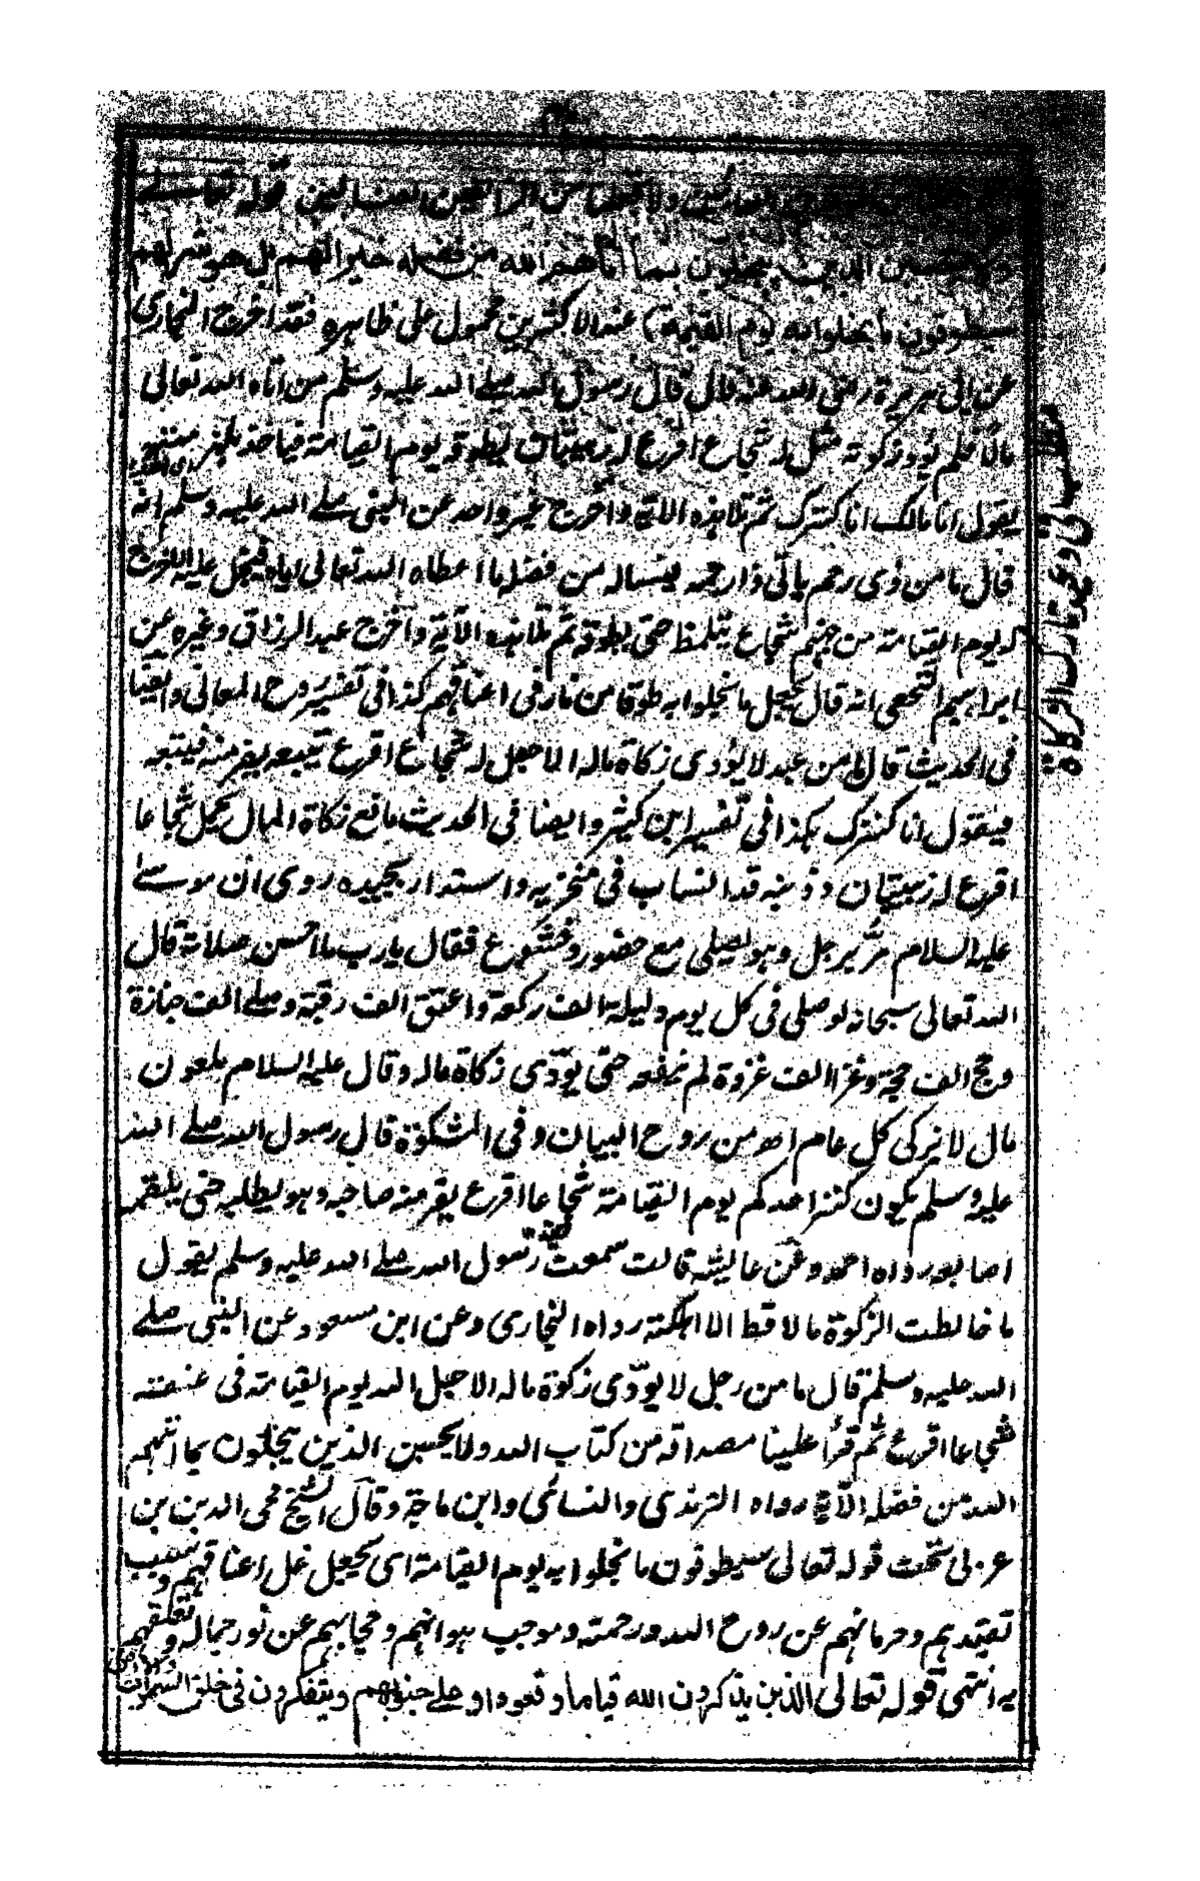 العارفين ولا تجعلنا من الزائغين الضالين قوله تعالى
ولا يحسبن الذين يبخلون بما آتاهم الله من فضله خيرا لهم بل هو شر لهم
سيطوقون ما بخلوا به يوم القيمة) عند الاكثرين محمول على ظاهره فقد اخرج البخارى
عن ابى هريرة رضى الله عنه قال قال رسول الله صلے الله عليه وسلم من اتاه الله تعالى
مالًا فلم يؤد زكوته مثل له شجاع اقرع له زبيبتان يطوقه يوم القيامة فياخذ بلهزمتيه
يقول انا مالك انا كنزك ثم تلا هذه الاية واخرج غير واحد عن النبى صلے الله عليه وسلم انه
قال ما من ذى رحم ياتى ذا رحمه فيساله من فضل ما اعطاه الله تعالى اياه فيبخل عليه الا خرج
له يوم القيامة من جهنم شجاع يتلمظ حتى يطوقه ثم تلا هذه الآية وآخرج عبد الرزاق وغيره عن
ابراهيم النخعى انه قال يجعل ما بخلوا به طوقا من نار فى اعناقهم كذا فى تفسير روح المعانى وايضا
فى الحديث قال ما من عبد لا يؤدى زكاة ماله الا جعل له شجاع اقرع يتبعه يفر منه فيتبعه
فيقول انا كنزك هكذا فى تفسير ابن كثير وايضا فى الحديث مانع زكاة المال يجعل شجاعا
اقرع له زبيبتان وذنبه قد انساب فى منخريه واستدار بجيده روى ان موسےٰ
عليه السلام مرَّ برجل وهو يصلى مع حضور وخشوع فقال يارب ما احسن صلاته قال
الله تعالى سبحانه لو صلى فى كل يوم وليلة الف ركعة واعتق الف رقبة وصلے الف جنازة
وحج الف حجة وغزا الف غزوة لم ينفعه حتى يؤدى زكاة ماله وقال عليه السلام ملعون
مال لا يزكى كل عام اھ من روح البيان وفى المشكوة قال رسول الله صلے الله
عليه وسلم يكون كنز احدكم يوم القيامة شجاعا اقرع يفر منه صاحبه وهو يطلبه حتى يلقمه
اصابعه رواه احمد وعن عايشة قالت سمعت رسول الله صلے الله عليه وسلم يقول
ما خالطت الزكوة مالا قط الا اهلكته رواه البخارى وعن ابن مسعود عن النبى صلے
الله عليه وسلم قال ما من رجل لا يؤدى زكوة ماله الا جعل الله يوم القيامة فى عنقه
شجاعا اقرع ثم قرأ علينا مصداقه من كتاب الله ولا يحسبن الذين يبخلون بما اتٰهم
الله من فضله الآية رواه الترمذى والنسائى وابن ماجة وقال الشيخ محى الدين بن
عربى تحت قوله تعالى سيطوقون ما بخلوا به يوم القيامة اى يجعل غل اعناقهم وسبب
تقيدهم وحرمانهم عن روح الله ورحمته وموجب هوانهم وحجابهم عن نور جماله وتعلقهم
به انتهى قوله تعالى الذين يذكرون الله قياما وقعودا وعلے جنوبهم ويتفكرون فى خلق السموات